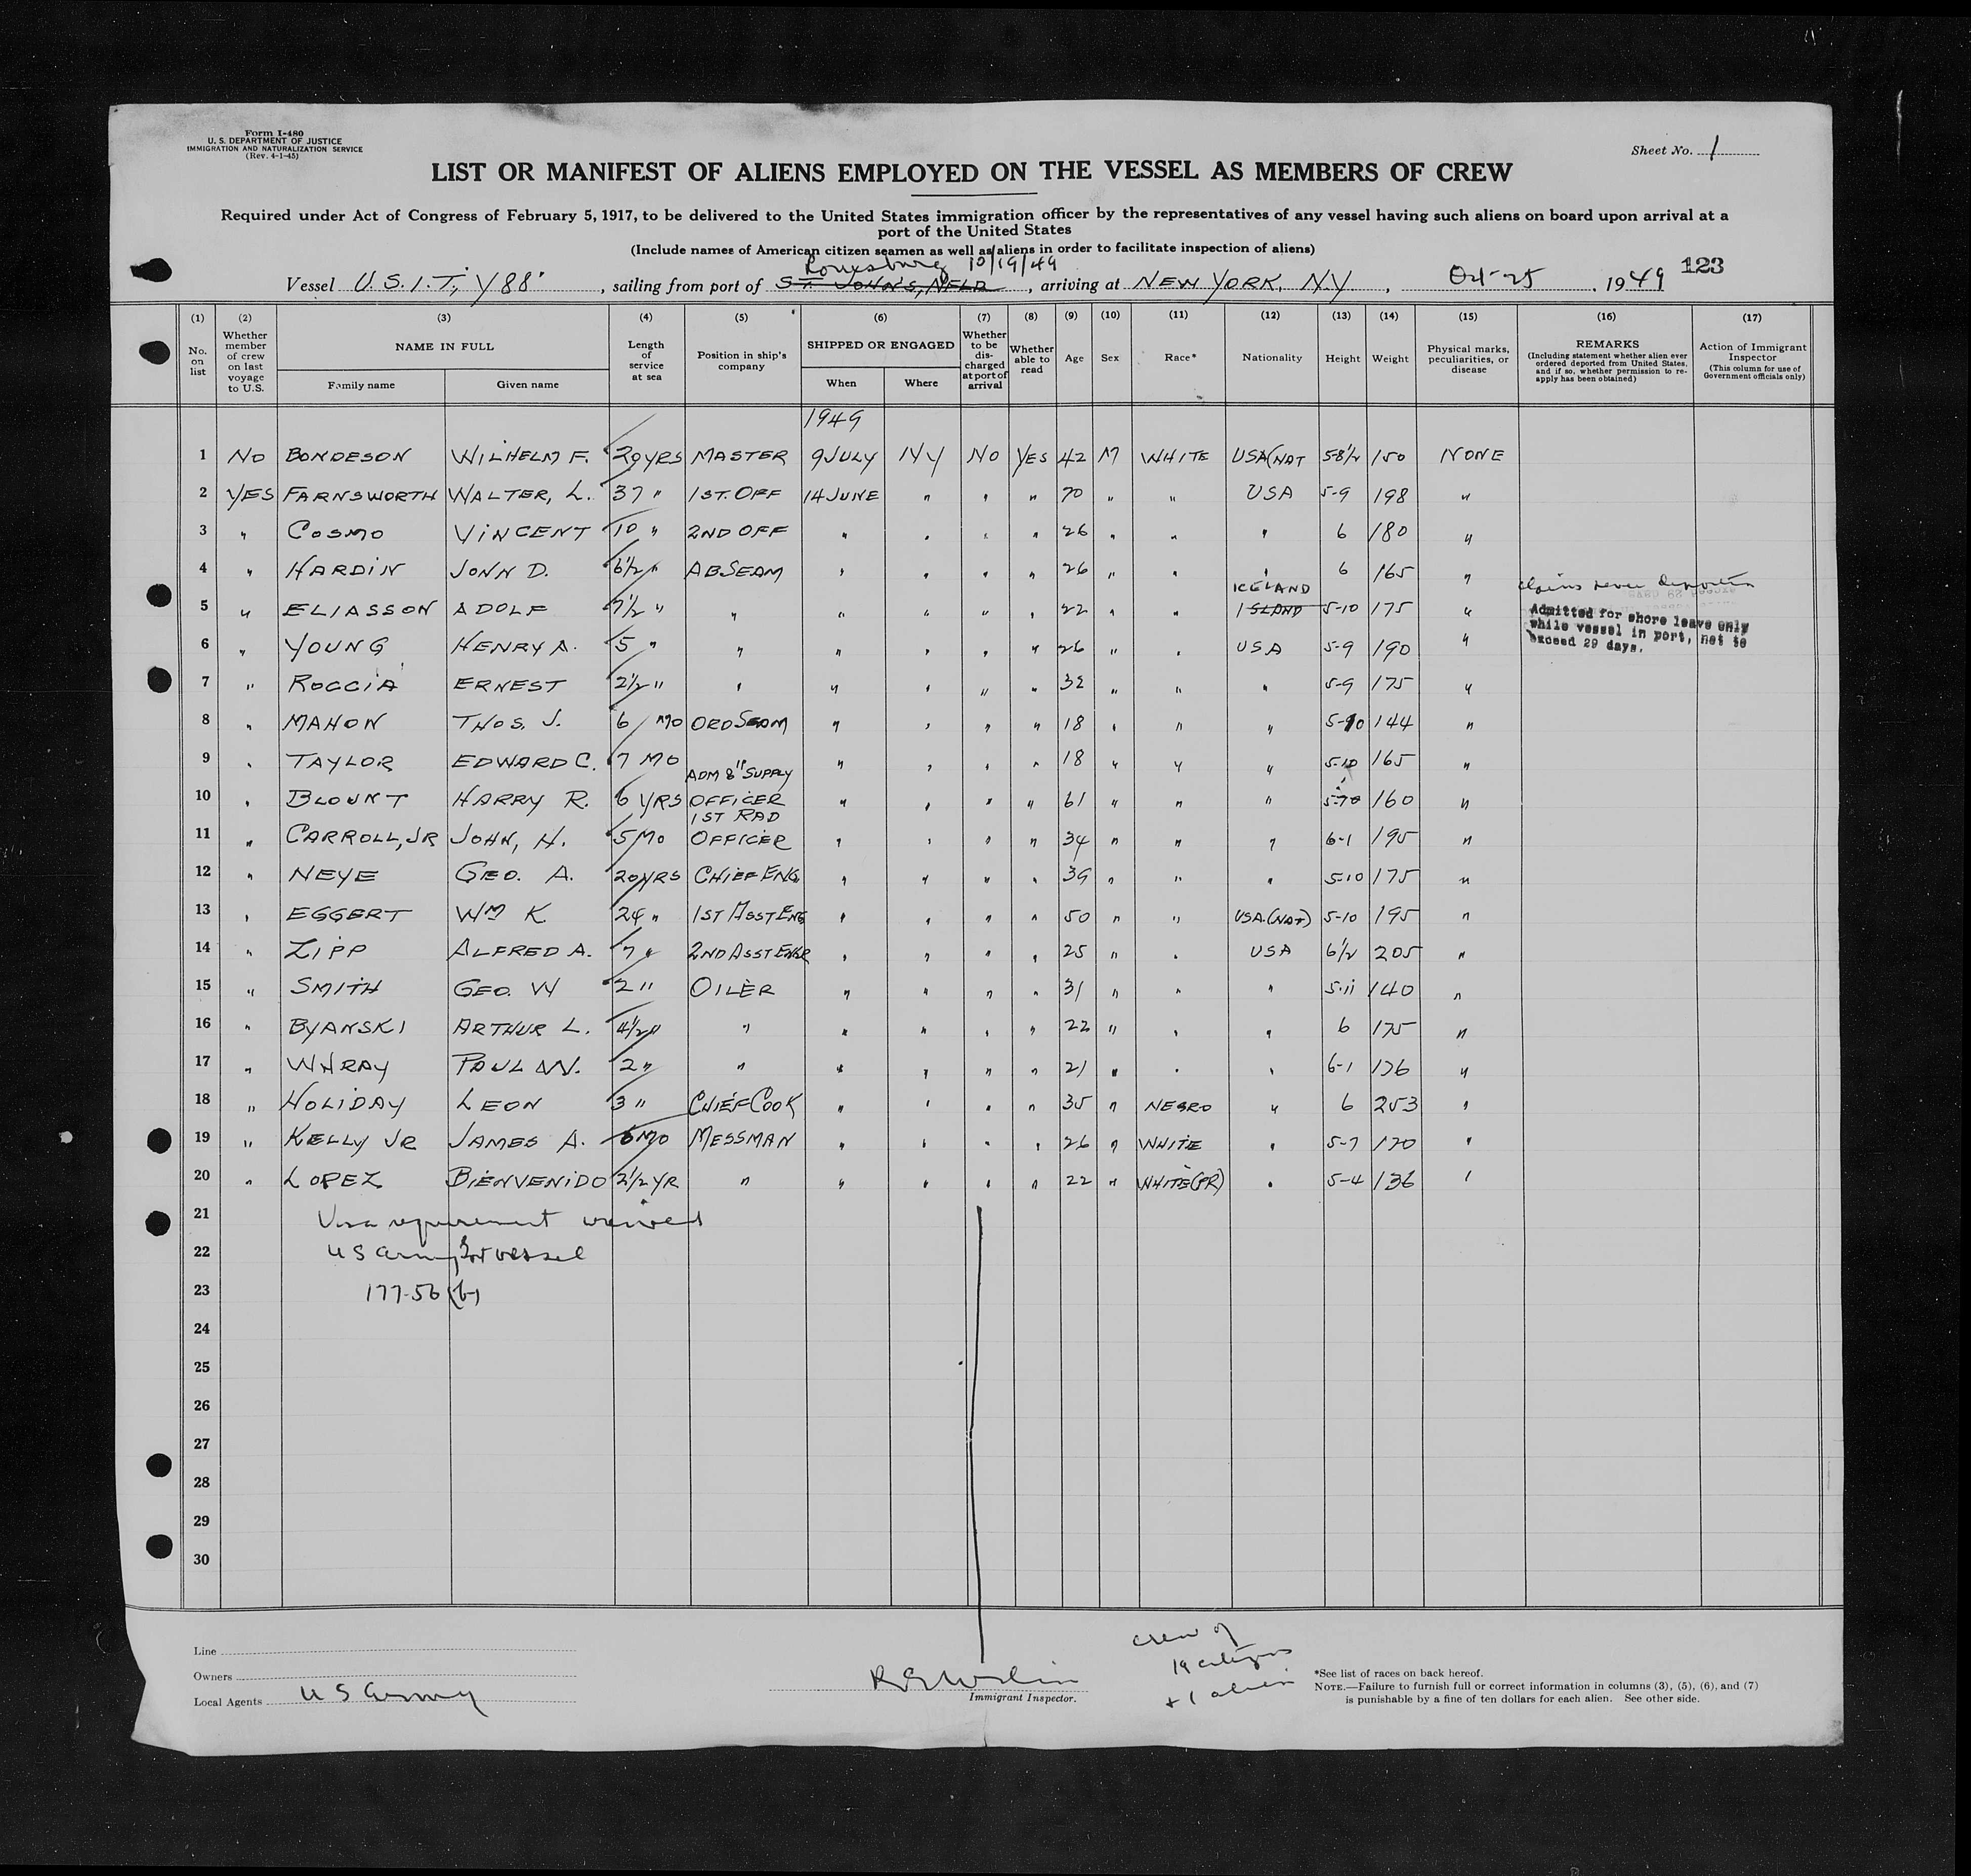 Form I-480
U. S. DEPARTMENT OF JUSTICE
IMMIGRATION AND NATURALIZATION SERVICE
(Rev. 4-1-45)
Sheet No. 1
LIST OR MANIFEST OF ALIENS EMPLOYED ON THE VESSEL AS MEMBERS OF CREW
Required under Act of Congress of February 5, 1917, to be delivered to the United States immigration officer by the representatives of any vessel having such aliens on board upon arrival at a
port of the United States
(Include names of American citizen seamen as well as aliens in order to facilitate inspection of aliens)
10/19/49
123
Vessel U.S.I.T., Y88, sailing from port of ST. JOHN'S, NFLD, arriving at NEW YORK, N.Y, Oct-25, 1949
(1) (2) (3) (4) (5) (6) (7) (8) (9) (10) (11) (12) (13) (14) (15) (16) (17)
No. on list
Whether member of crew on last voyage to U.S.
NAME IN FULL
Family name
Given name
Length of service at sea
Position in ship's company
SHIPPED OR ENGAGED
When
Where
Whether to be discharged at port of arrival
Whether able to read
Age
Sex
Race*
Nationality
Height
Weight
Physical marks, peculiarities, or disease
REMARKS
(Including statement whether alien ever ordered deported from United States, and if so, whether permission to re-apply has been obtained)
Action of Immigrant Inspector
(This column for use of Government officials only)
1949
1 NO BONDESON WILHELM F. 29 YRS MASTER 9 JULY NY NO YES 42 M WHITE USA(NAT 5-8 1/2 150 NONE
2 YES FARNSWORTH WALTER, L. 37 " 1ST. OFF 14 JUNE " " " 70 " " USA 5-9 198 "
3 " COSMO VINCENT 10 " 2ND OFF " " " " 26 " " " 6 180 "
4 " HARDIN JOHN D. 6 1/2 " AB SEAM " " " " 26 " " " 6 165 "
ICELAND
claims never deported
5 " ELIASSON ADOLF 7 1/2 " " " " " " 22 " " ISLAND 5-10 175 "
Admitted for shore leave only
while vessel in port, not to
exceed 29 days.
6 " YOUNG HENRY A. 5 " " " " " " 26 " " USA 5-9 190 "
7 " ROCCIA ERNEST 2 1/2 " " " " " " 32 " " " 5-9 175 "
8 " MAHON THOS. J. 6 MO ORD SEAM " " " " 18 " " " 5-10 144 "
9 " TAYLOR EDWARD C. 7 MO " " " " 18 " " " 5-10 165 "
ADM & SUPPLY
10 " BLOUNT HARRY R. 6 YRS OFFICER " " " " 61 " " " 160 "
1ST RAD
11 " CARROLL, JR JOHN, H. 5 MO OFFICER " " " " 34 " " " 6-1 195 "
12 " NEYE GEO. A. 20 YRS CHIEF ENG " " " " 39 " " " 5-10 175 "
13 " EGGERT WM K 24 " 1ST ASST ENG " " " " 50 " " USA.(NAT) 5-10 195 "
14 " ZIPP ALFRED A. 7 " 2ND ASST ENGR " " " " 25 " " USA 6 1/2 205 "
15 " SMITH GEO. W 2 " OILER " " " " 31 " " " 5-11 140 "
16 " BYANSKI ARTHUR L. 4 1/2 " " " " " " 22 " " " 6 175 "
17 " WHRAY PAUL W. 2 " " " " " " 21 " " " 6-1 176 "
18 " HOLIDAY LEON 3 " CHIEF COOK " " " " 35 " NEGRO " 6 253 "
19 " KELLY JR JAMES A. 6 MO MESSMAN " " " " 26 " WHITE " 5-7 170 "
20 " LOPEZ BIENVENIDO 2 1/2 YR " " " " " 22 " WHITE(PR) " 5-4 136 "
21 Visa requirement waived
22 US Army vessel
23 177-56 (b)
24
25
26
27
28
29
30
Line
Owners
Local Agents US Army
Immigrant Inspector.
crew of
19 citizens
+ 1 alien
*See list of races on back hereof.
NOTE.—Failure to furnish full or correct information in columns (3), (5), (6), and (7)
is punishable by a fine of ten dollars for each alien. See other side.